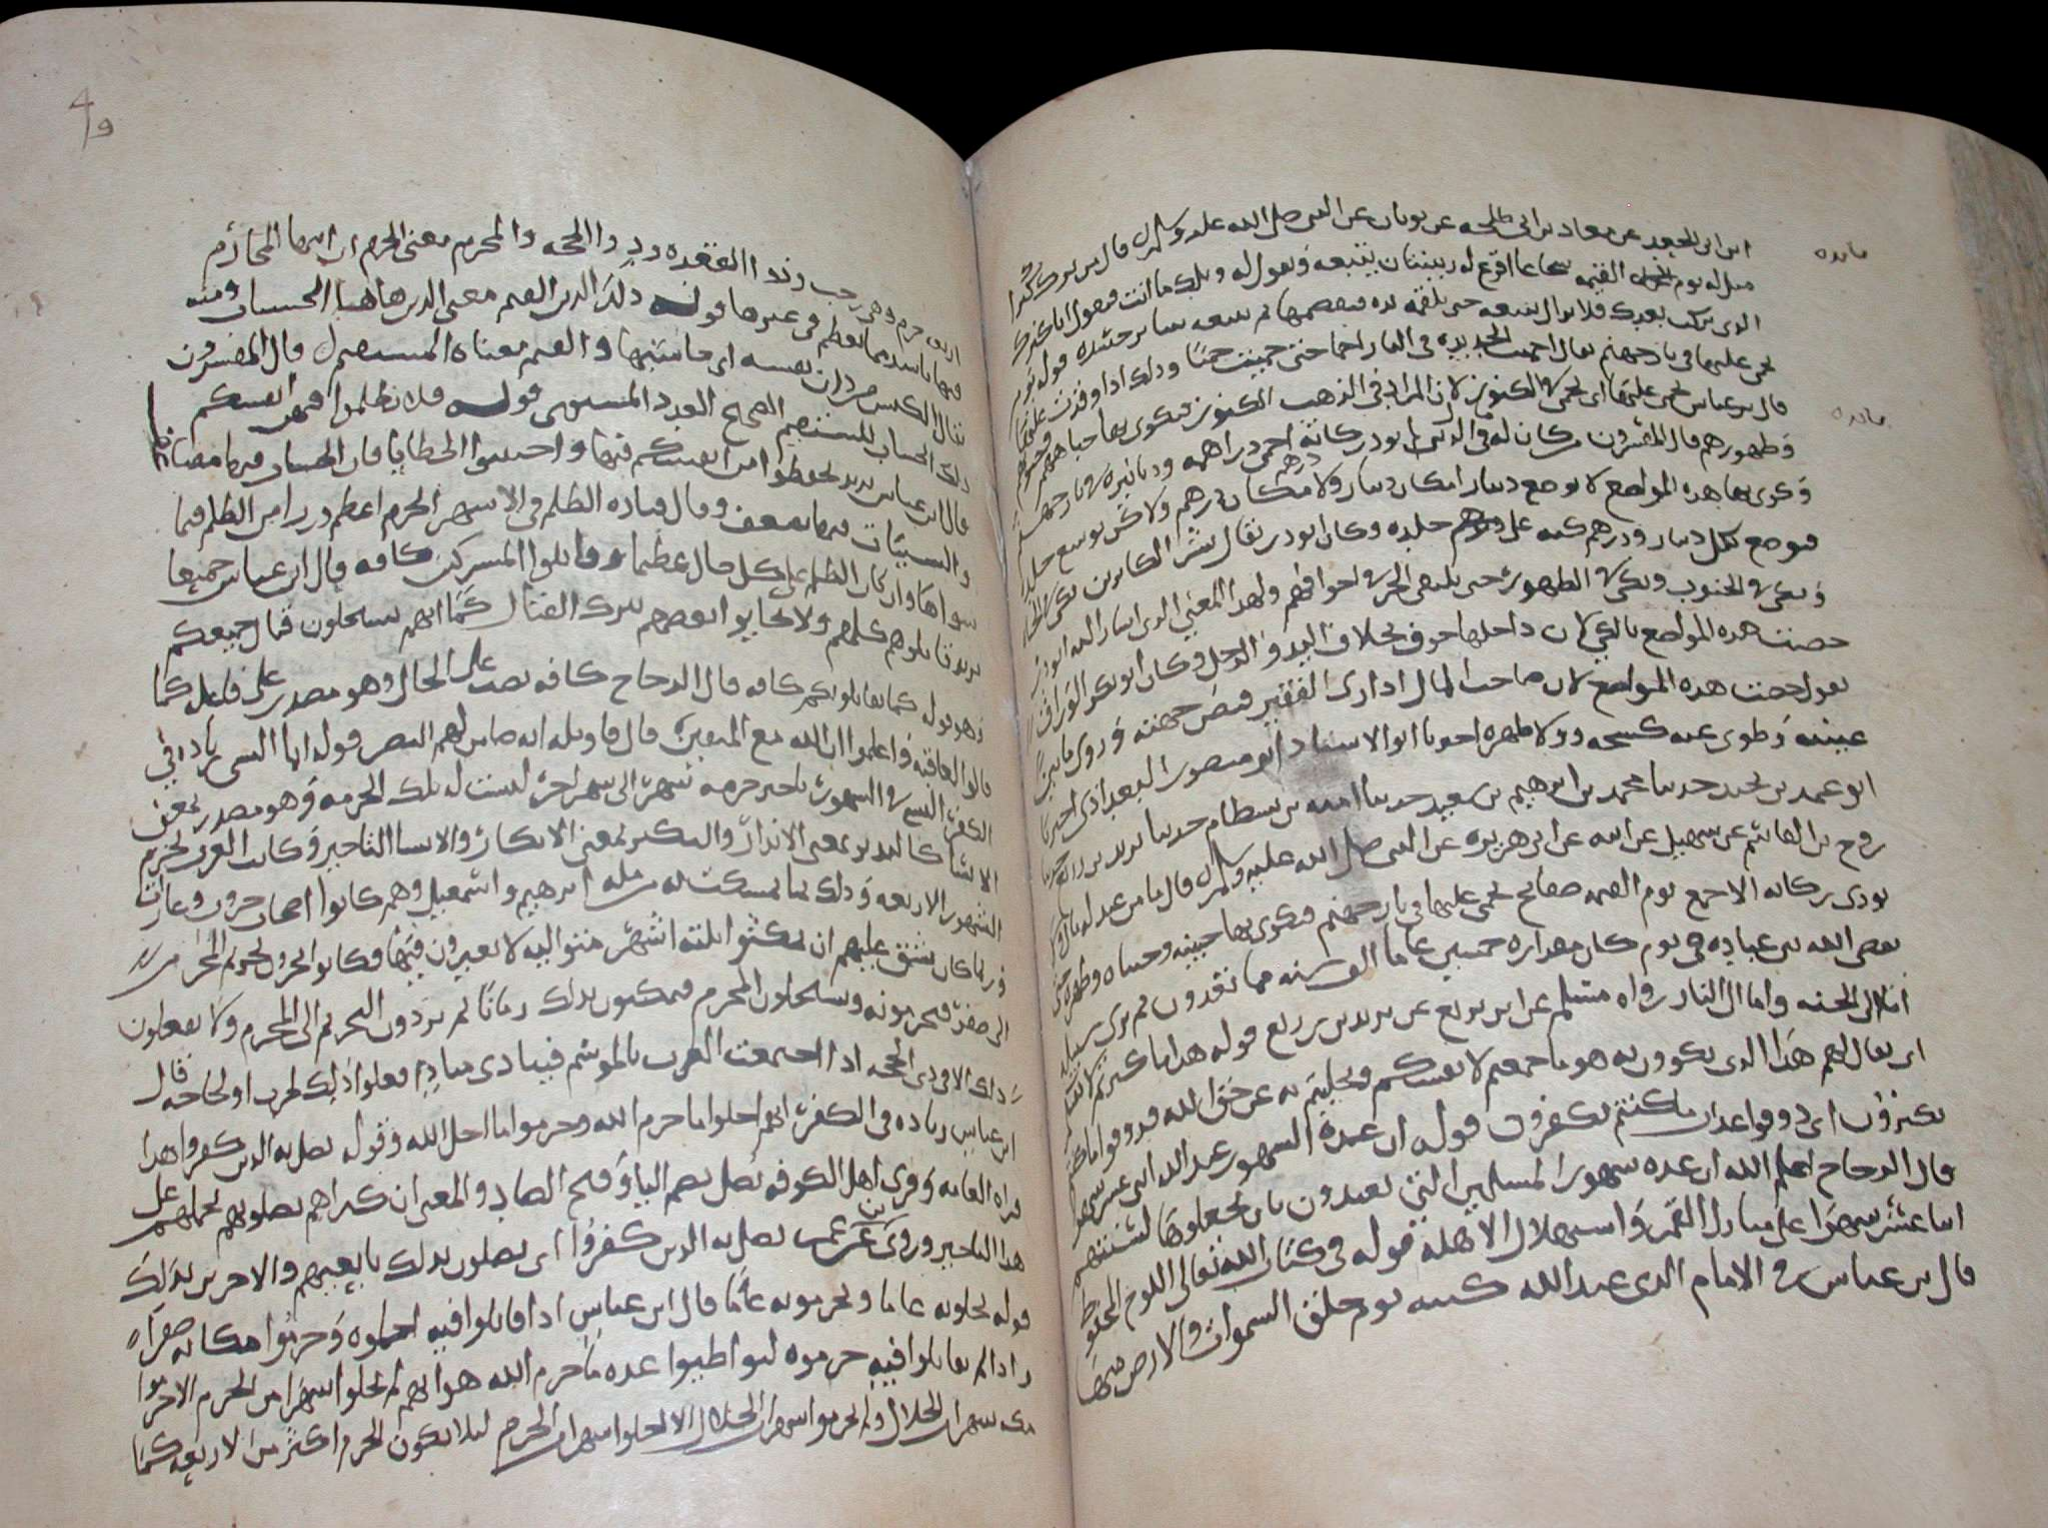 ابن ابي الجعد عن معدان بن ابي طلحه عن ثوبان عن النبي صلى الله عليه وسلم قال من ترك كنزا
مثل له يوم القيمه شجاعا اقرع له زبيبتان يتبعه ويقول له ويلك ما انت فيقول انا كنزك
الذي تركت بعدك فلا يزال يتبعه حتى يلقمه يده فيقضمها ثم يتبعه سائر جسده قوله يوم
يحمى عليها في نار جهنم يقال احميت الحديده في النار احماء حتى حميت حميا وذلك اذا اوقدت عليها
قال ابن عباس يحمى عليها اى يحمى على الكنوز لان المراد في الذهب الكنوز فتكوى بها جباههم وجنوبهم
وظهورهم قال المفسرون من كان له في الدنيا احمى دراهمه ودنانيره في نار جهنم
وكوى بها هذه المواضع لا يوضع دينار مكان دينار ولا درهم مكان درهم ولكن يوسع جلده
فيوضع كل دينار ودرهم كيه على جلده وكان ابو ذر يقول بشر الكانزين بكي في الجباه
وبكي في الجنوب وبكي في الظهور حتى يلتقي الحر في اجوافهم ولهذا المعنى الذي اشار اليه ابو ذر
خصت هذه المواضع بالكي لان داخلها جوف بخلاف اليد والرجل وكان ابو بكر الوراق
يقول خصت هذه المواضع لان صاحب المال اذا راى الفقير قبض جبهته وزوى ما بين
عينيه وطوى عنه كشحه وولاه ظهره اخبرنا الاستاذ ابو منصور البغدادي اخبرنا
ابو عمرو بن نجيد حدثنا محمد بن ابرهيم بن سعيد حدثنا اميه بن بسطام حدثنا يزيد بن زريع حدثنا
روح بن القاسم عن سهيل عن ابيه عن ابي هريره عن النبي صلى الله عليه وسلم قال ما من عبد له مال لا
يودي زكاته الا جمع يوم القيمه صفائح يحمى عليها في نار جهنم فتكوى بها جبينه وجنباه وظهره حتى
يقضي الله بين عباده في يوم كان مقداره خمسين الف سنه مما تعدون ثم يرى سبيله
اما الى الجنه واما الى النار رواه مسلم عن ابن بزيع عن يزيد بن زريع قوله هذا ما كنزتم لانفسكم
اى يقال لهم هذا الذي تكوون به هو ما جمعتم لانفسكم وبخلتم به عن حق الله فذوقوا ما كنتم
تكنزون اى ذوقوا عذاب ما كنتم تكنزون قوله ان عدة الشهور عند الله اثنا عشر شهرا
قال الزجاج اعلم الله ان عدة شهور المسلمين التي تعبدون بان يجعلوها لسنتهم
اثنا عشر شهرا على منازل القمر واستهلال الاهله قوله في كتاب الله تعالى اللوح المحفوظ
قال ابن عباس في الامام الذي عند الله كتبه يوم خلق السموات والارض منها
اربعه حرم وهي رجب وذو القعده وذو الحجه والمحرم معنى الحرم ان انتهاك المحارم
فيها اشد مما يعظم في غيرها قوله ذلك الدين القيم معنى الدين هاهنا الحساب ومنه
يقال الكيس من دان نفسه اى حاسبها والقيم معناه المستقيم قال المفسرون
ذلك الحساب المستقيم الصحيح والعدد المستوي قوله فلا تظلموا فيهن انفسكم
قال ابن عباس يريد تحفظوا من انفسكم فيها واجتنبوا الخطايا فان الحسنات فيها مضاعفه
والسيئات فيها تضعف وقال قتاده الظلم في الاشهر الحرم اعظم وزرا من الظلم فيما
سواها وان كان الظلم على كل حال عظيما وقاتلوا المشركين كافه قال ابن عباس جميعا
يريد قاتلوهم كلهم ولا تحابوا بعضهم بترك القتال كما انهم يستحلون قتال جميعكم
وهو قوله كما يقاتلونكم كافه قال الزجاج كافه نصب على الحال وهو مصدر على فاعله كما
قالوا العاقبه واعلموا ان الله مع المتقين قال تاويله انه ضامن لهم النصر قوله انما النسي زياده في
الكفر النسي في الشهور تاخير حرمه شهر الى شهر اخر ليست له تلك الحرمه وهو مصدر بمعنى
الانسا كالنذير بمعنى الانذار والنكير بمعنى الانكار والانسا التاخير وكانت العرب تحرم
الشهور الاربعه وذلك مما تمسكت به من مله ابرهيم واسمعيل وهم كانوا اصحاب حروب وغارات
فربما كان يشق عليهم ان يمكثوا ثلثه اشهر متواليه لا يغيرون فيها فكانوا يؤخرون تحريم المحرم
الى صفر فيحرمونه ويستحلون المحرم فيمكثون بذلك زمانا ثم يردون التحريم الى المحرم ولا يفعلون
ذلك الا في ذي الحجه اذا اجتمعت العرب بالموسم فينادي مناد افعلوا ذلك لحرب او لحاجه قال
ابن عباس زياده في الكفر انهم احلوا ما حرم الله وحرموا ما احل الله وقوله يضل به الذين كفروا هذا
قراه العامه وقرى اهل الكوفه يضل بضم اليا وفتح الضاد والمعنى ان كبراهم يضلونهم بحملهم على
هذا التاخير وروي عن يضل به الذين كفروا اى يضلون بذلك تابعيهم والاخذين بذلك
قوله يحلونه عاما ويحرمونه عاما قال ابن عباس اذا قاتلوا فيه احلوه وحرموا مكانه صفرا
واذا لم يقاتلوا فيه حرموه ليواطئوا عده ما حرم الله هو انهم لم يحلوا شهرا من الحرم الا حرموا
مكانه شهرا من الحلال ولم يحرموا شهرا من الحلال الا احلوا شهرا من الحرم لئلا يكون الحرم اكثر من الاربعه كما